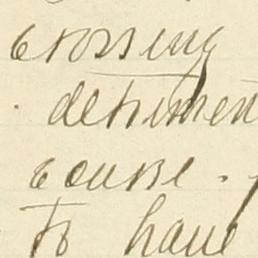 crossing
detriment
course.
to have